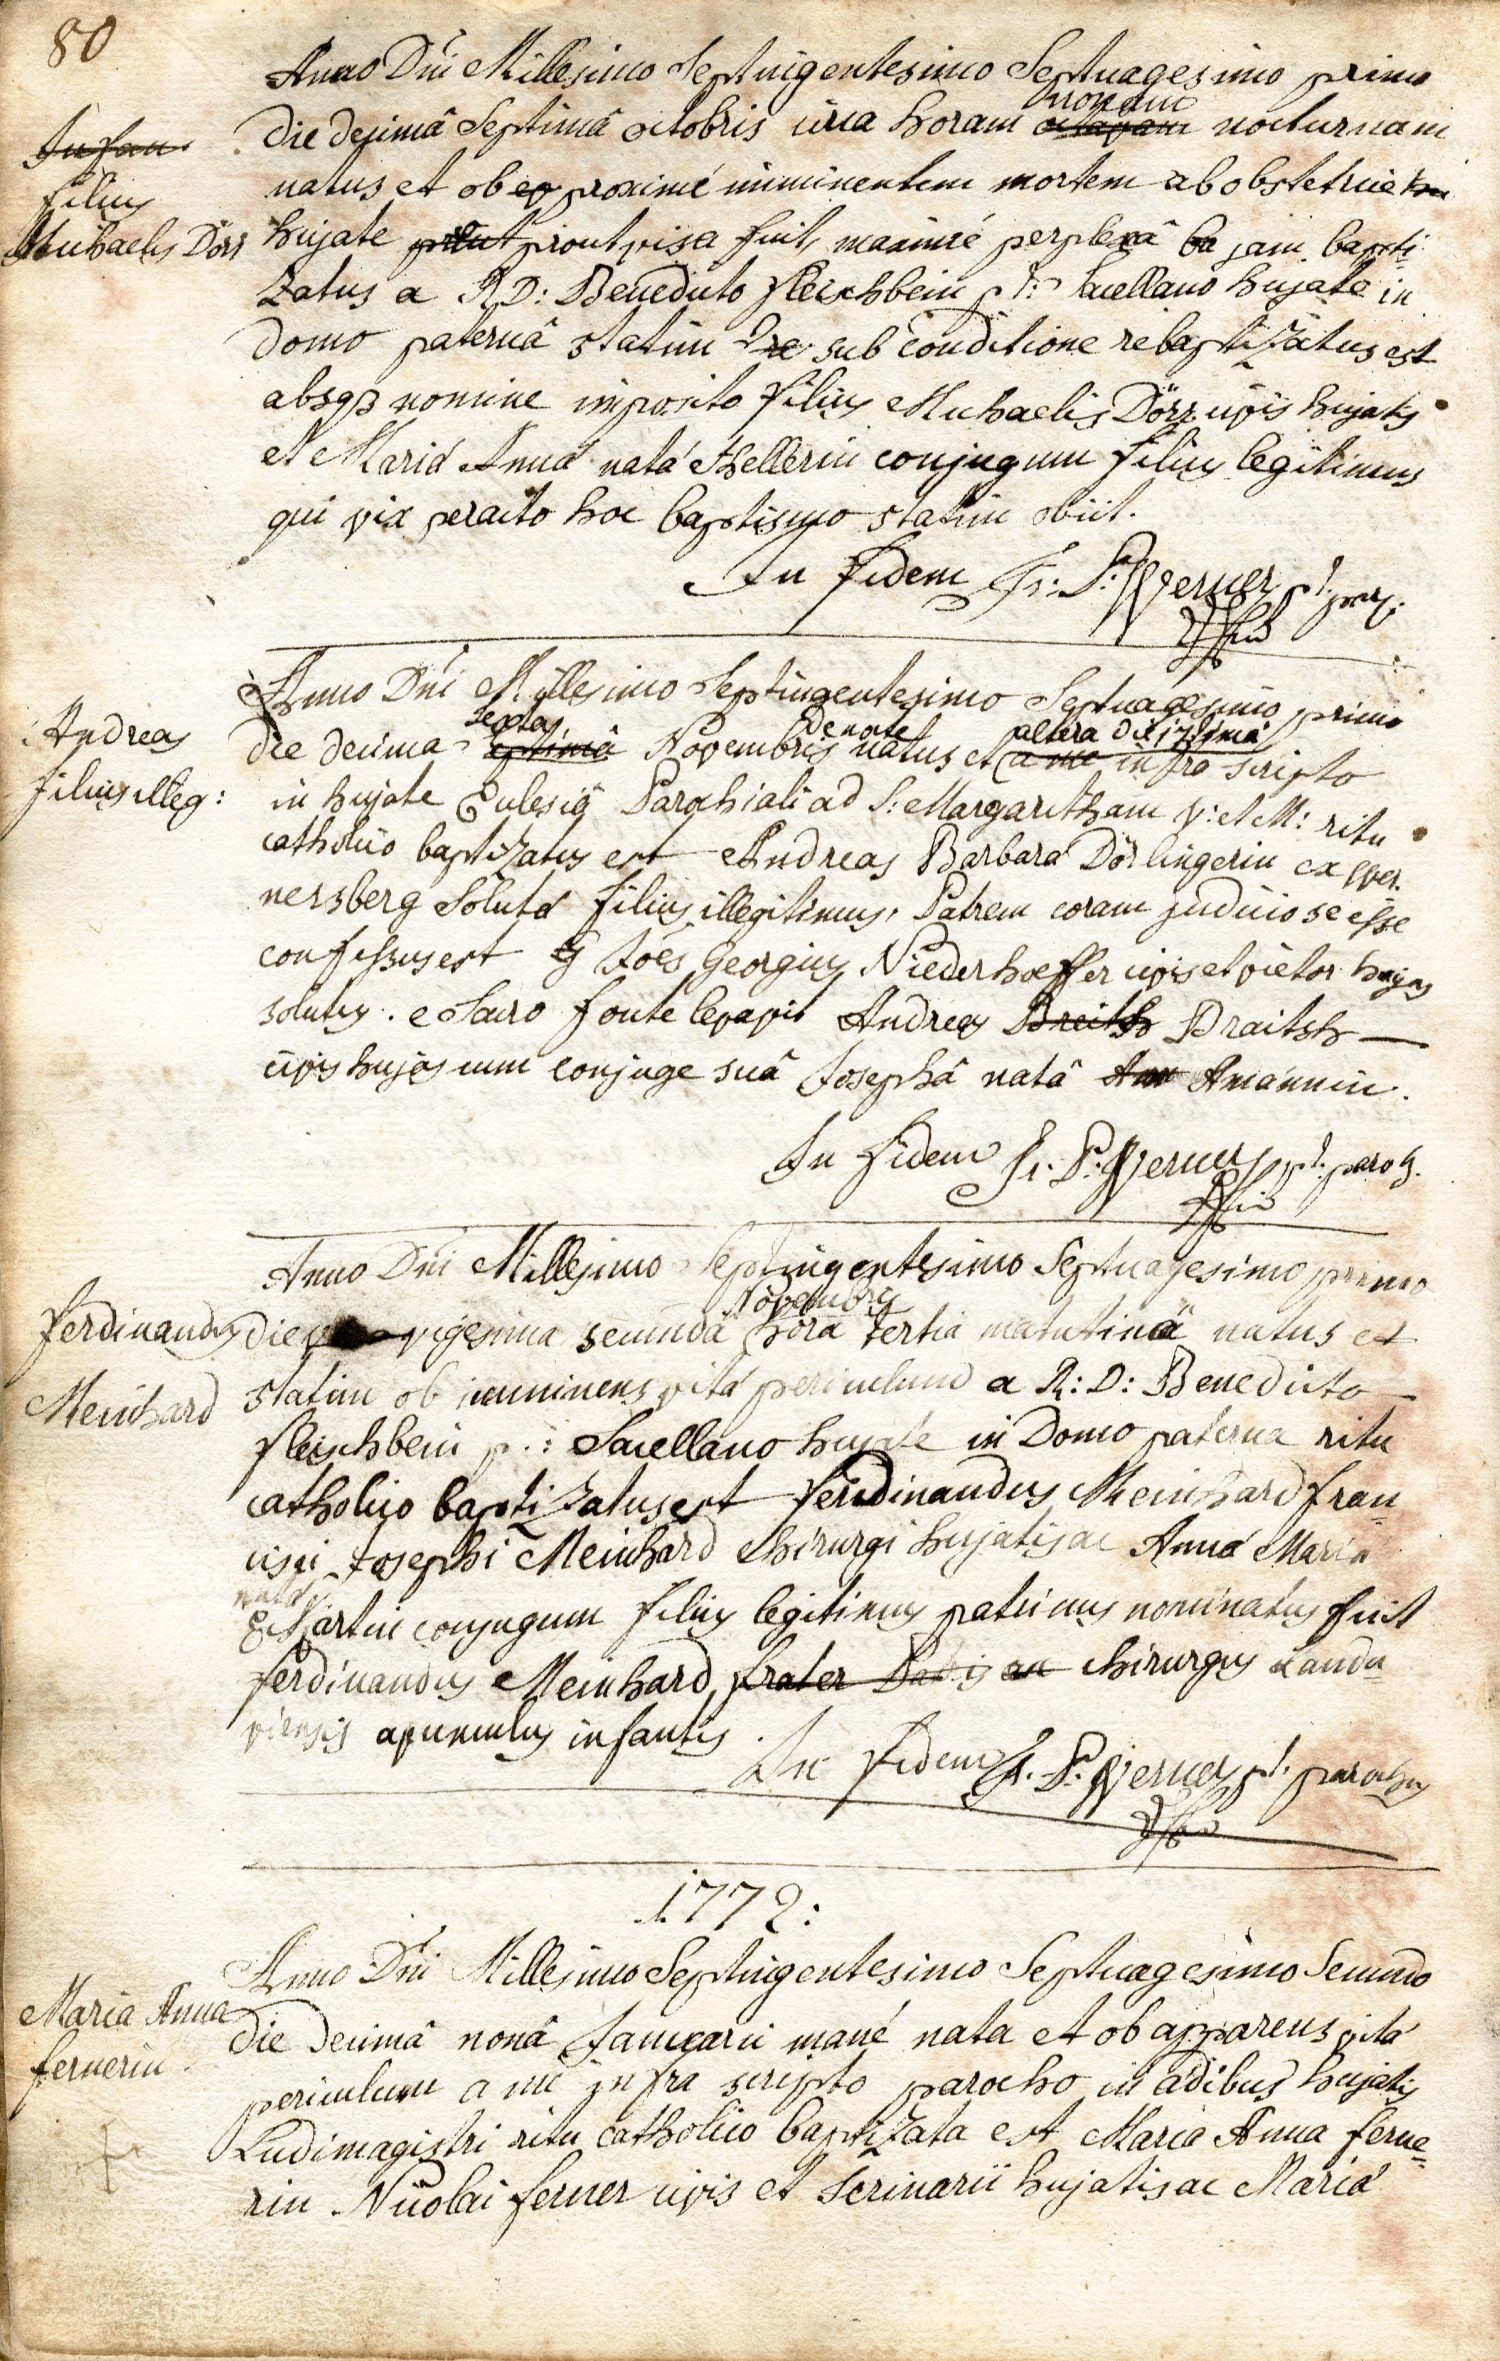 80
Anno Dni Millesimo Septuigentesimo Septuagesimo primo
die decimâ Septimâ octobris circa horam octavam nonam nocturnam
Infans
filius
Michaelis Dörr
natus et ob eo proximé imminentem mortem ab obstetrice
hujate prout visa fuit, maximé perplexâ ba jam bapti-
zatus a R.D: Benedicto Fleischbein p.t: sacellano hujate in
domo paternâ statim sub conditione rebaptizatus est
absq3 nomine imposito filius Michaelis Dörr civis hujatis
et Mariá Anná natá Hellerin conjugum filius legitimus
qui vix peracto hoc baptismo statim obiit.
In fidem Fr: P: Werner p.t. par:
Anno Dni Millesimo Septingentesimo Septuagesimo primo
die decima septimâ sexta Novembris de nocte natus et a me altera die 17timâ infra scripto
Andreas
filius illeg:
in hujate Eclesiâ Parochiali ad S: Margaritham V: et M: ritu
catholico baptizatus est Andreas Barbará Dörlingerin ex Wer-
nersberg Solutá filius illegitimus, Patrem coram judicio se esse
confessus est Joês Georgius Niederhoeffer civis et viêtor hujas
solutus. e Sacro fonte levavit Andreas Breith Braitsh
civis hujas cum conjuge suâ Josephâ natâ Am Amánnin.
In fidem Fr. P: Werner p.t. paroh.
Anno Dni Millesimo Septingentesimo Septuagesimo primo
die vigesima secundâ Novembris hora tertia matutinâ natus et
Ferdinandus
Meinhard
statim ob imminens vitá periculum a R: D: Benedicto
Fleischbein p.: Sacellano hujate in Domo paterna ritu
catholico baptizatus est Ferdinandus Meinhard Fran-
cisci Josephi Meinhard Chirurgi hujatis ac Anná Mariá
natá Martin conjugum filius legitimus patrinus nominatus fuit
Ferdinandus Meinhard, frater Patris an chirurgus Landa-
viensis avunculus infantis.
In fidem Fr. P: Werner p.t. parochus
1772:
Anno Dni Millesimo Septingentesimo Septuagesimo Secundo
Maria Anna
Fernerin
die decimâ nonâ Januarii mané nata et ob apparens vitá
periculum a me infra scripto parocho in ádibus hujatis
Ludimagistri ritu catholico baptizata est Maria Anna Ferne-
rin Nicolai Ferner civis et Scrinarii hujatis ac Mariá